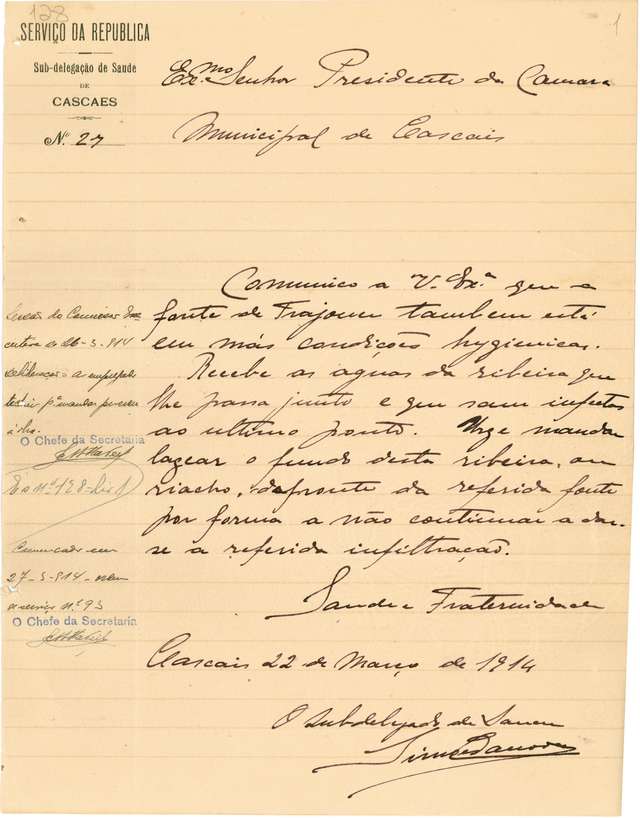 128
1
SERVIÇO DA REPUBLICA
Sub-delegação de Saude
DE
CASCAES
N.º 27
Ex.mo Senhor Presidente da Camara
Municipal de Cascais
Comunico a V. Ex.ª que a
fonte de Trajouce tambem está
em más condições hygienicas.
Recebe as aguas da ribeira que
lhe passa junto e que sam infectas
ao ultimo ponto. Urge mandar
lagear o fundo desta ribeira, ou
riacho, defronte da referida fonte
por forma a não continuar a dar-
se a referida infiltração.
Saude e Fraternidade
Cascais 22 de Março de 1914
O subdelegado de Saude
Sessão da Comissão Exe
cutiva de 26-3-914
Deliberado
O Chefe da Secretaria
E o Nº 128
Comunicado em
27-3-914
nº 93
O Chefe da Secretaria